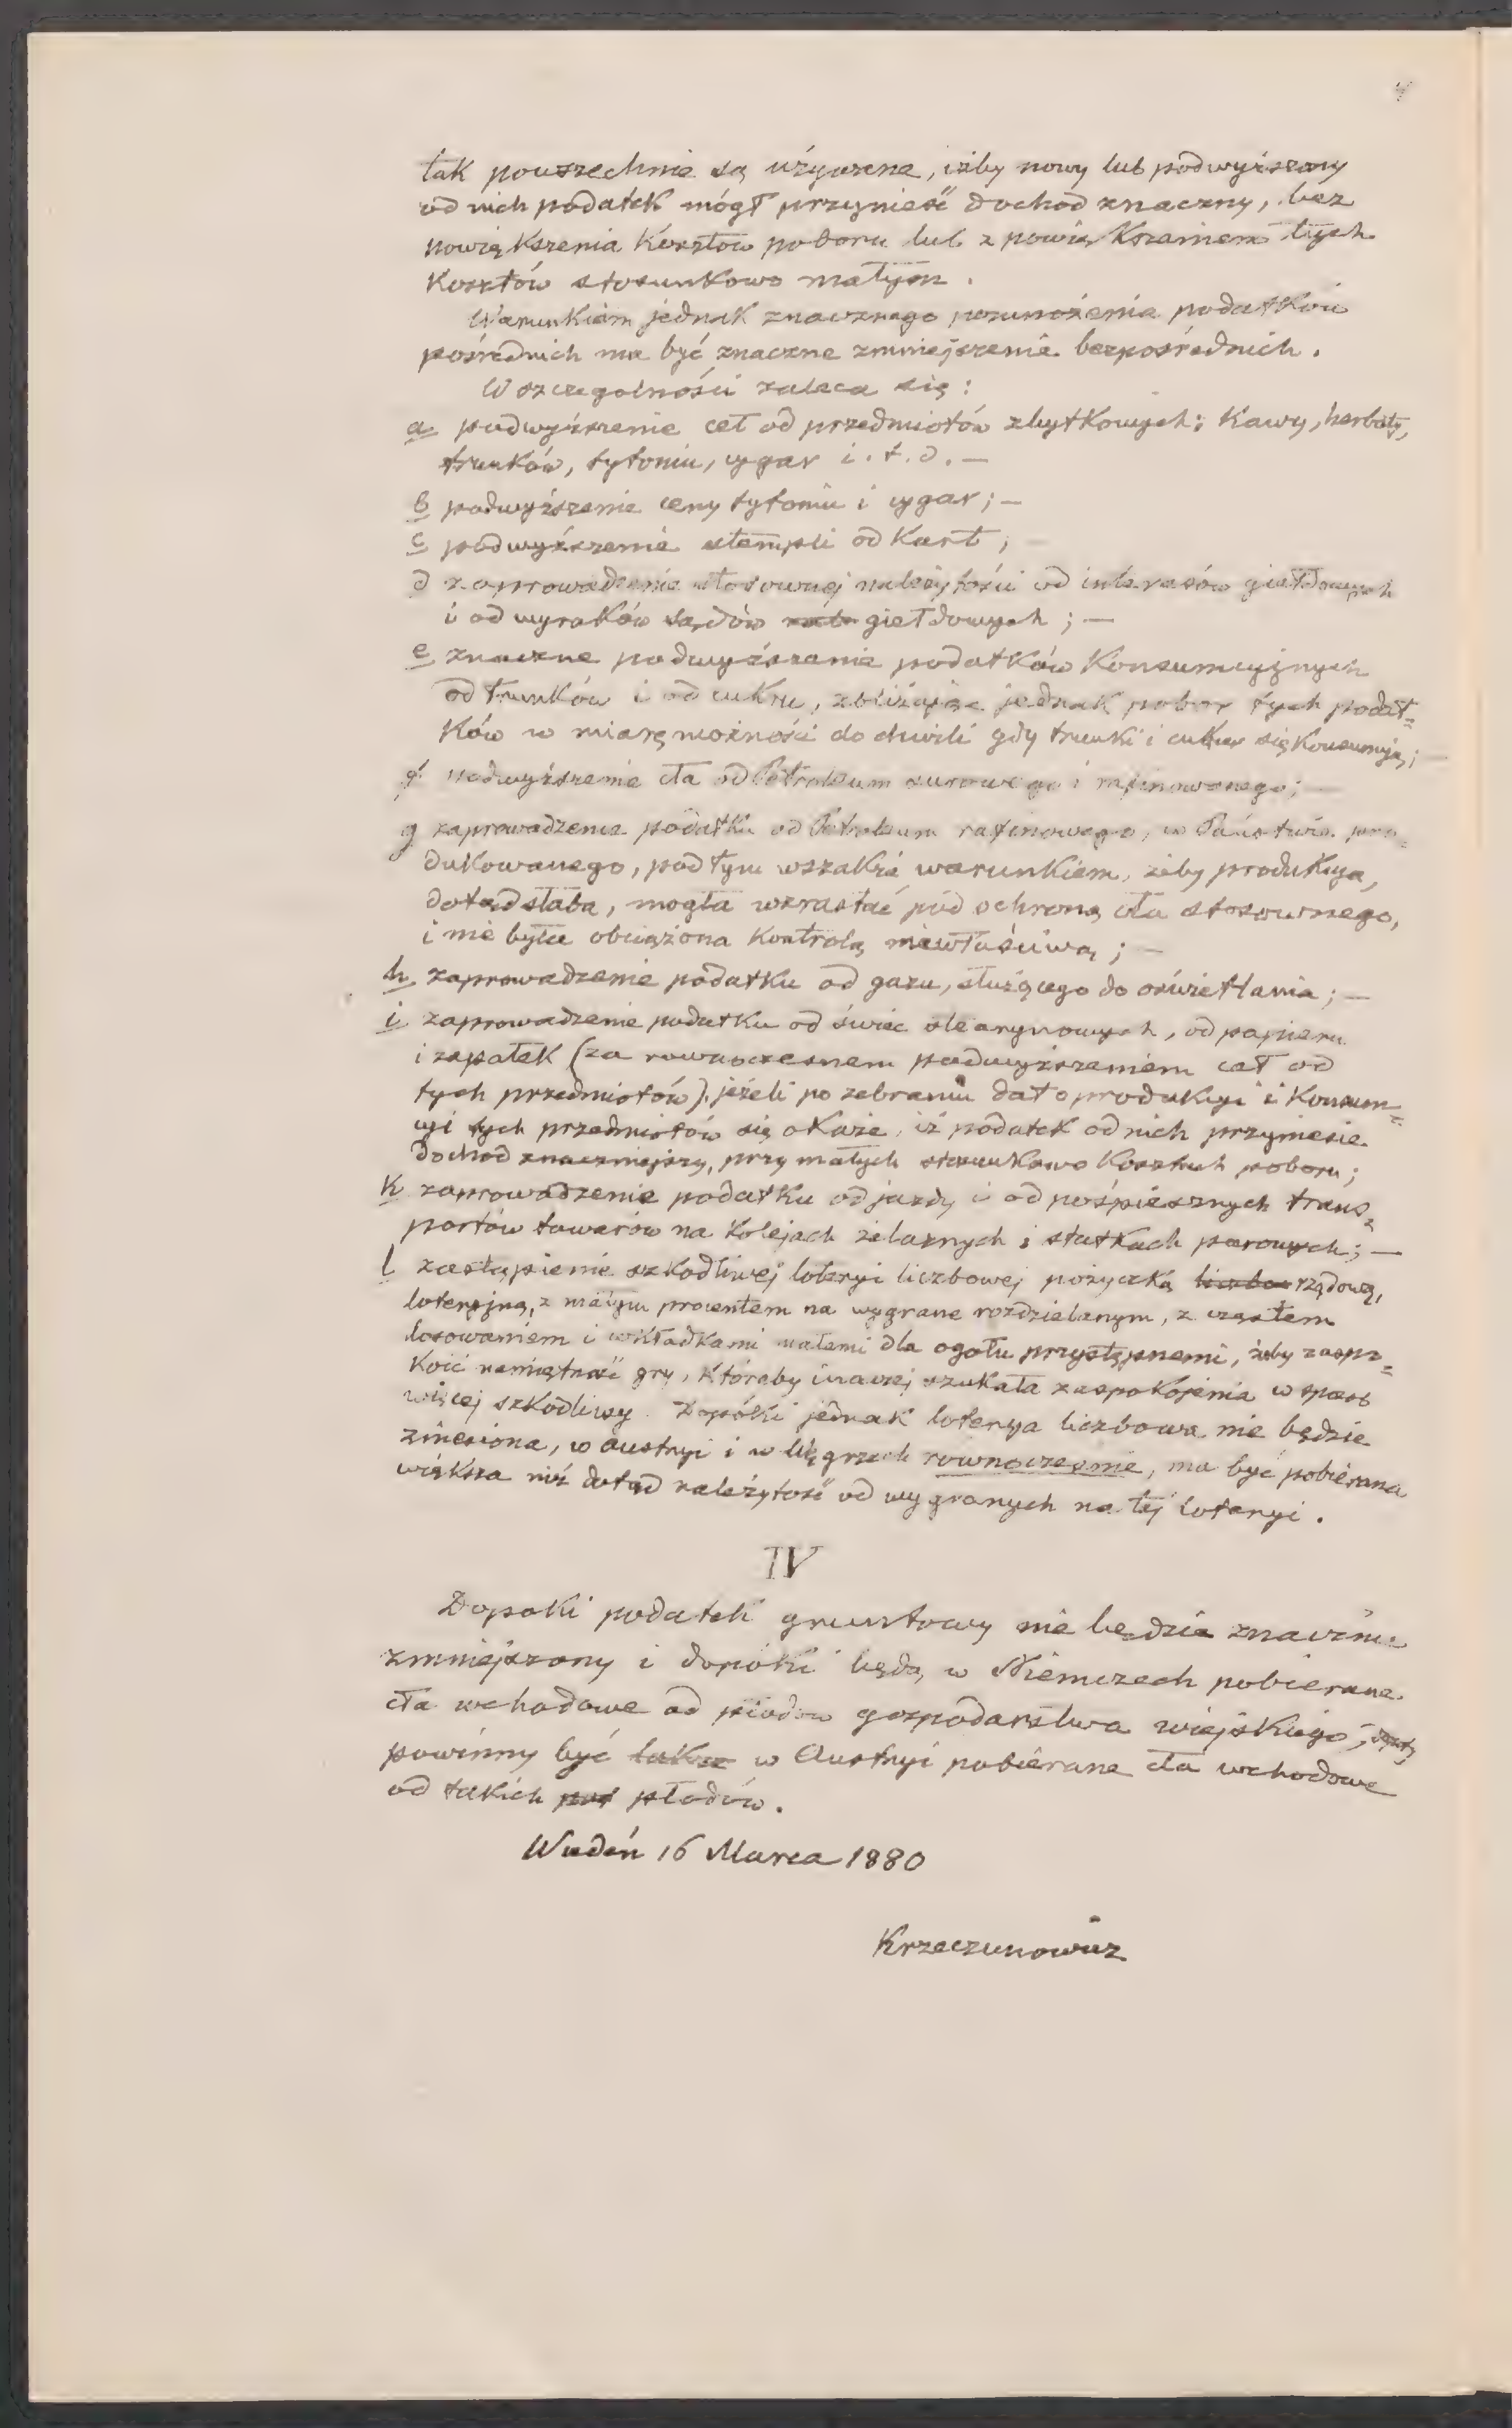 4
tak powszechnie są używane, iżby nowy lub podwyższony
od nich podatek mógł przynieść dochod znaczny, bez
powiększenia kosztów poboru lub z powiększeniem tych
kosztów stosunkowo małym.
Warunkiem jednak znacznego pomnożenia podatków
pośrednich ma być znaczne zmniejszenie bezpośrednich.
W szczególności zaleca się:
a podwyższenie ceł od przedmiotów zbytkowych; Kawy, herbaty,
trunków, tytoniu, cygar i.t.d. —
b podwyższenie ceny tytoniu i cygar; —
c podwyższenie stempli od Kart; —
d zaprowadzenie stosownej należytości od interesów giełdowych
i od wyroków sądów giełdowych; —
e znaczne podwyższenie podatków Konsumcyjnych
od trunków i od cukru, zbliżając jednak pobor tych podat=
ków w miarę możności do chwili gdy trunki i cukier się Konsumują; —
f podwyższenie cła od Petroleum surowego i rafinowanego; —
g zaprowadzenie podatku od Petroleum rafinowego, w Państwie pro=
dukowanego, pod tym wszakże warunkiem, żeby produkcya,
dotąd słaba, mogła wzrastać pod ochroną cła stosownego,
i nie była obciążona kontrolą niewłaściwą; —
h zaprowadzenie podatku od gazu, służącego do oświetlania; —
i zaprowadzenie podatku od świec stearynowych, od papieru
i zapałek (za rownoczesnem podwyższeniem ceł od
tych przedmiotów), jeżeli po zebraniu dat o produkcyi i Konsum=
cyi tych przedmiotów się okaże, iż podatek od nich przyniesie
dochod znaczniejszy, przy małych stosunkowo Kosztach poboru;
k zaprowadzenie podatku od jazdy i od pośpiesznych trans=
portów towarów na Kolejach żelaznych i statkach parowych; —
l zastąpienie szkodliwej loteryi liczbowej pożyczką rządową,
loteryjną, z małym procentem na wygrane rozdzielanym, z częstem
losowaniem i wkładkami małemi dla ogołu przystępnemi, żeby zaspo=
koić namiętność gry, któraby inaczej szukała zaspokojenia w sposób
więcej szkodliwy. Dopóki jednak loterya liczbowa nie będzie
zniesiona, w Austryi i w Węgrzech rownocześnie, ma być pobierana
większa niż dotąd należytość od wygranych na tej loteryi.
IV
Dopoki podatek gruntowy nie będzie znacznie
zmniejszony i dopóki będą w Niemczech pobierane
cła wchodowe od płodów gospodarstwa wiejskiego,
powinny być w Austryi pobierane cła wchodowe
od takich płodów.
Wiedeń 16 Marca 1880
Krzeczunowicz